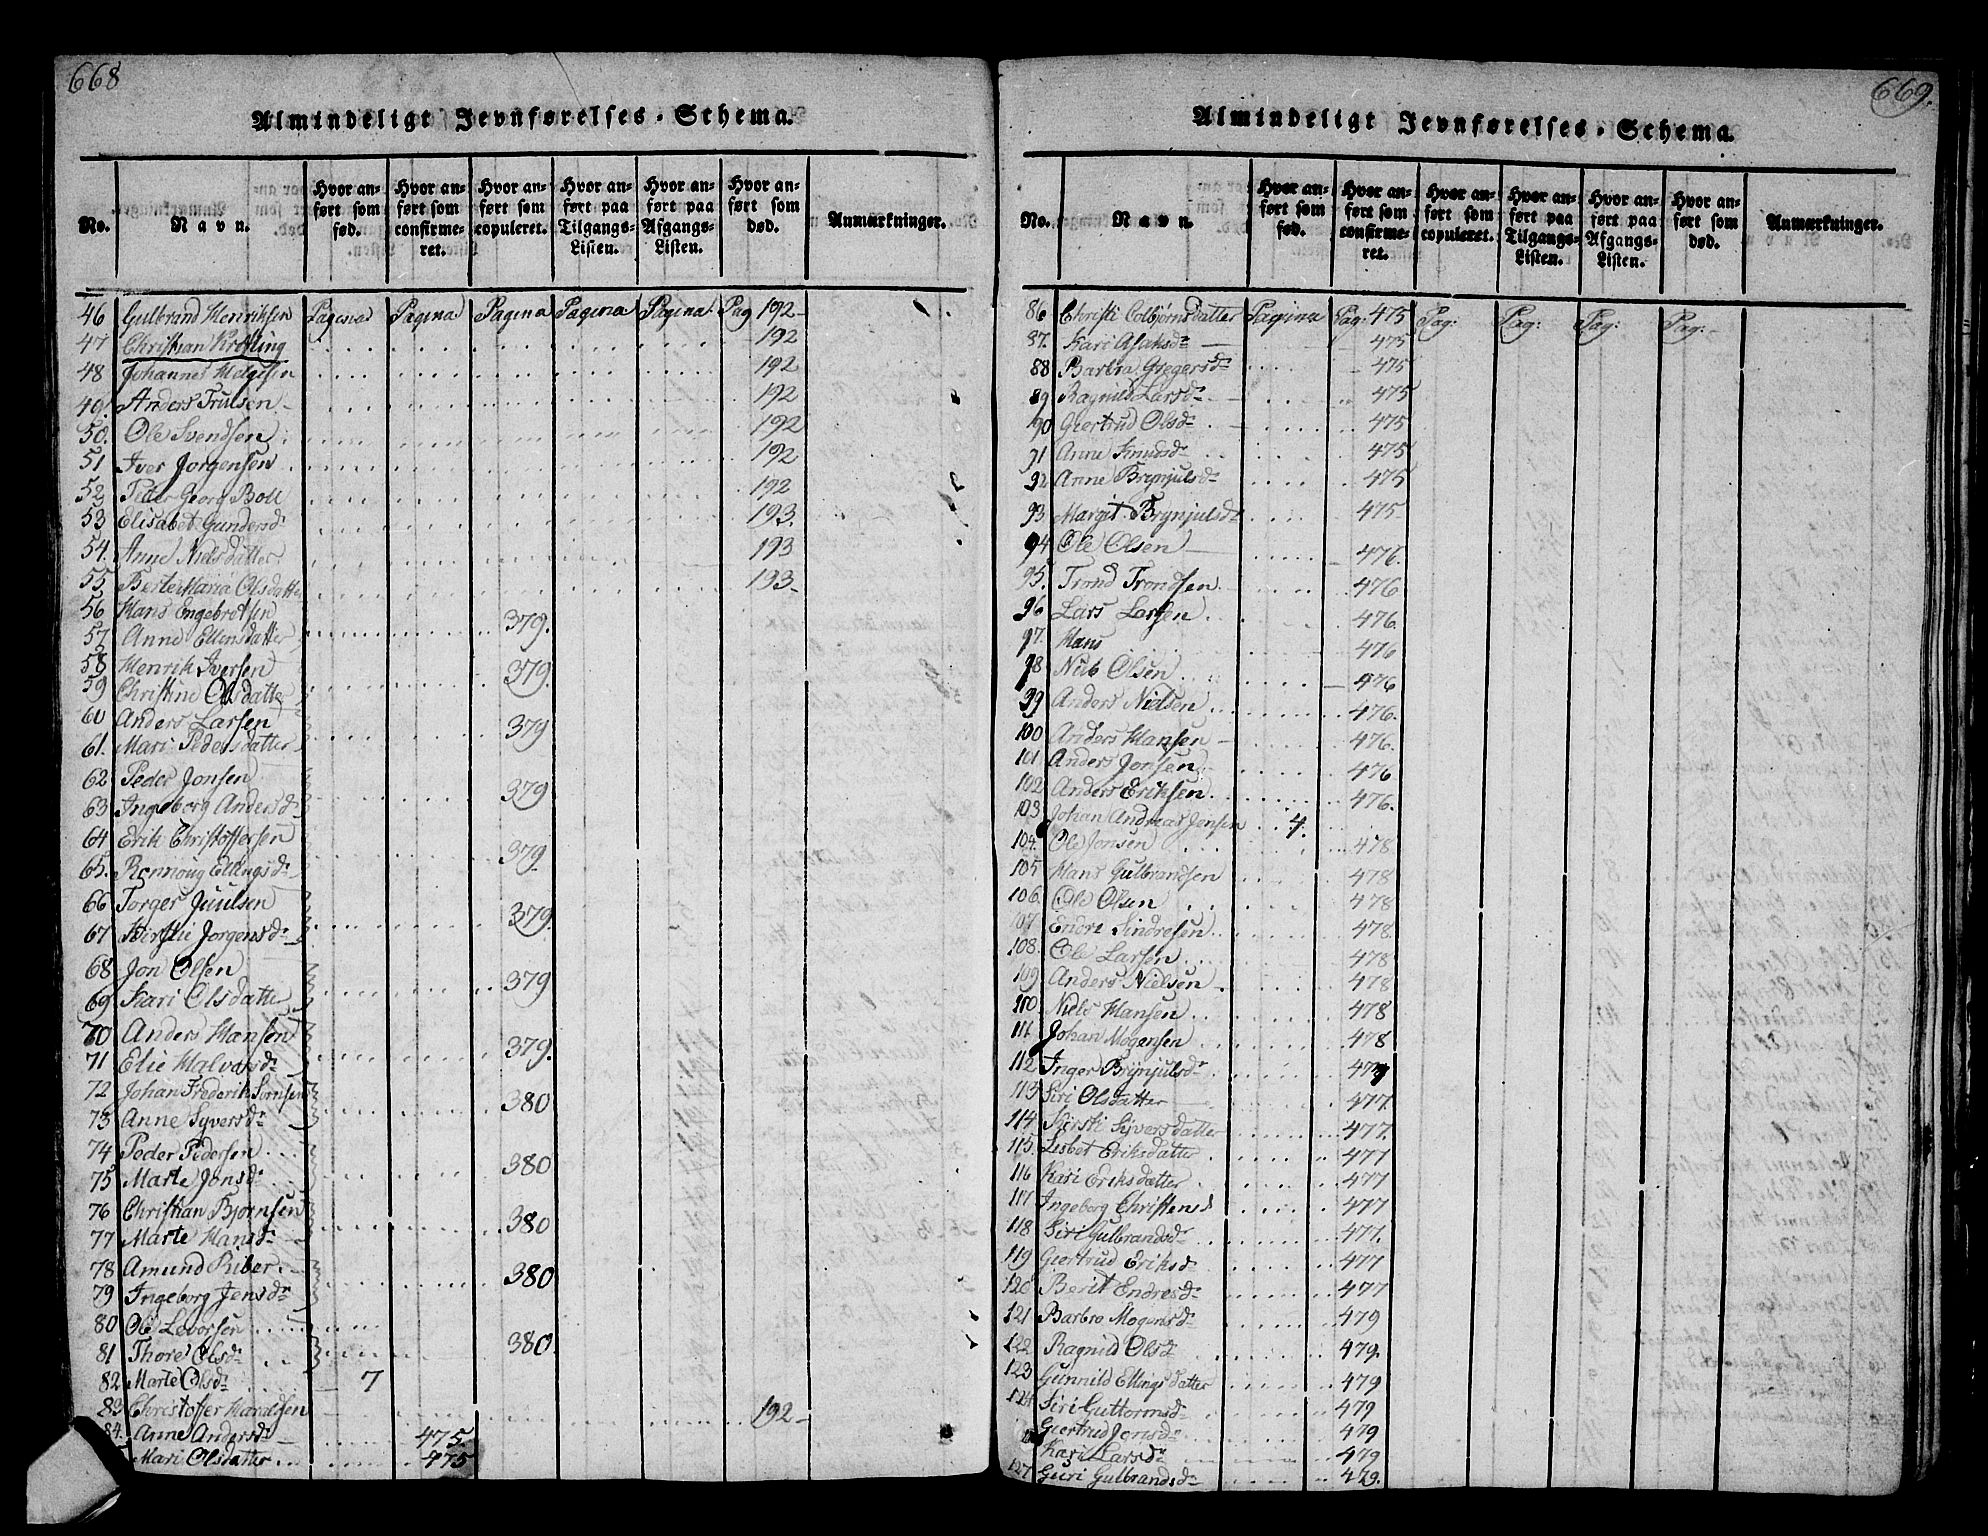 668
Almindeligt Jevnførelses-Schema.
No. Navn. Hvor anført som fød. Hvor anført som confirmeret. Hvor anført som copuleret. Hvor anført paa Tilgangs-Listen. Hvor anført paa Afgangs-Listen. Hvor anført som død. Anmærkninger.
46 Gulbrand Henriksen Pagina Pagina Pagina Pagina Pagina Pag 192
47 Christian 192
48 Johannes Helgesen 192
49. Anders Trulsen 192
50. Ole Svendsen 192
51 Iver Jorgensen 192
52 Peder Georg Boll 192
53 Elisabet Gundersd: 193.
54. Anne Nielsdatter 193
55 Berte Maria Olsdatter 193
56 Hans Engebretsen
57 Anne Ellensdatter 379.
58 Henrik Iversen
59 Christine Olsdatter 379.
60 Anders Larsen
61. Mari Pedersdatter 379
62 Peder Jonsen
63 Ingeborg Andersd: 379
64 Erik Christoffersen
65. Ronnoug Ellingsd: 379.
66 Torger Juulsen
67 Kirstie Jorgensd: 379.
68 Jon Olsen
69 Kari Olsdatter 379
70 Anders Hansen
71 Elie Halvorsd: 379.
72 Johan Frederik Sørnsen
73 Anne Syversd: 380
74 Peder Pedersen
75 Marte Jonsd: 380
76 Christian Bjørnsen
77 Marte Hansd: 380
78 Amund Riber
79 Ingeborg Jensd: 380
80 Ole Levorsen
81 Thore Olsd: 380
82 Marte Olsd: 7
83 Christoffer Haralsen 192
84. Anne Andersd: 475.
Mari Olsdatter 475
669.
Almindeligt Jevnførelses-Schema.
No. Navn. Hvor anført som fød. Hvor anført som confirmeret. Hvor anført som copuleret. Hvor anført paa Tilgangs-Listen. Hvor anført paa Afgangs-Listen. Hvor anført som død. Anmærkninger.
86 Christi Colbjørnsdatter Pagina Pag: 475 Pag: Pag: Pag: Pag:
87. Kari Asaksd: 475
88 Barbra Gregersd: 475
89 Ragnild Larsd: 475
90 Giertrud Olsd: 475
91 Anne Knudsd: 475
92 Anne Brynjulsd: 475
93 Margit Brynjulsd: 475
94 Ole Olsen 476.
95. Trond Trondsen 476
96 Lars Larsen 476.
97. Hans 476
98 Niels Olsen 476
99 Anders Nielsen 476.
100 Anders Hansen 476.
101 Anders Jonsen 476
102 Anders Eriksen 476.
103 Johan Andreas Jensen 4.
104. Ole Jonsen 478
105 Hans Gulbrandsen 478
106. Ole Olsen 478
107 Endre Sindresen 478.
108. Ole Larsen 478
109 Anders Nielsen 478
110. Niels Hansen 478
111. Johan Mogensen 478
112 Inger Brynjulsd: 477
113 Siri Olsdatter 477.
114 Kirsti Syversdatter 477.
115. Lisbet Eriksdatter 477
116 Kari Eriksdatter 477
117 Ingeborg Christensd 477
118 Siri Gulbrandsd: 477.
119 Giertrud Eriksd 477
120 Berit Endresd: 477
121 Barbro Mogensd: 479
122 Ragnild Olsd 479.
123 Gunnild Ellingsdatter 479
124 Siri Guttormsd: 479
Giertrud Jonsd: 479
Kari Larsd: 479
127 Guri Gulbrandsd: 479.